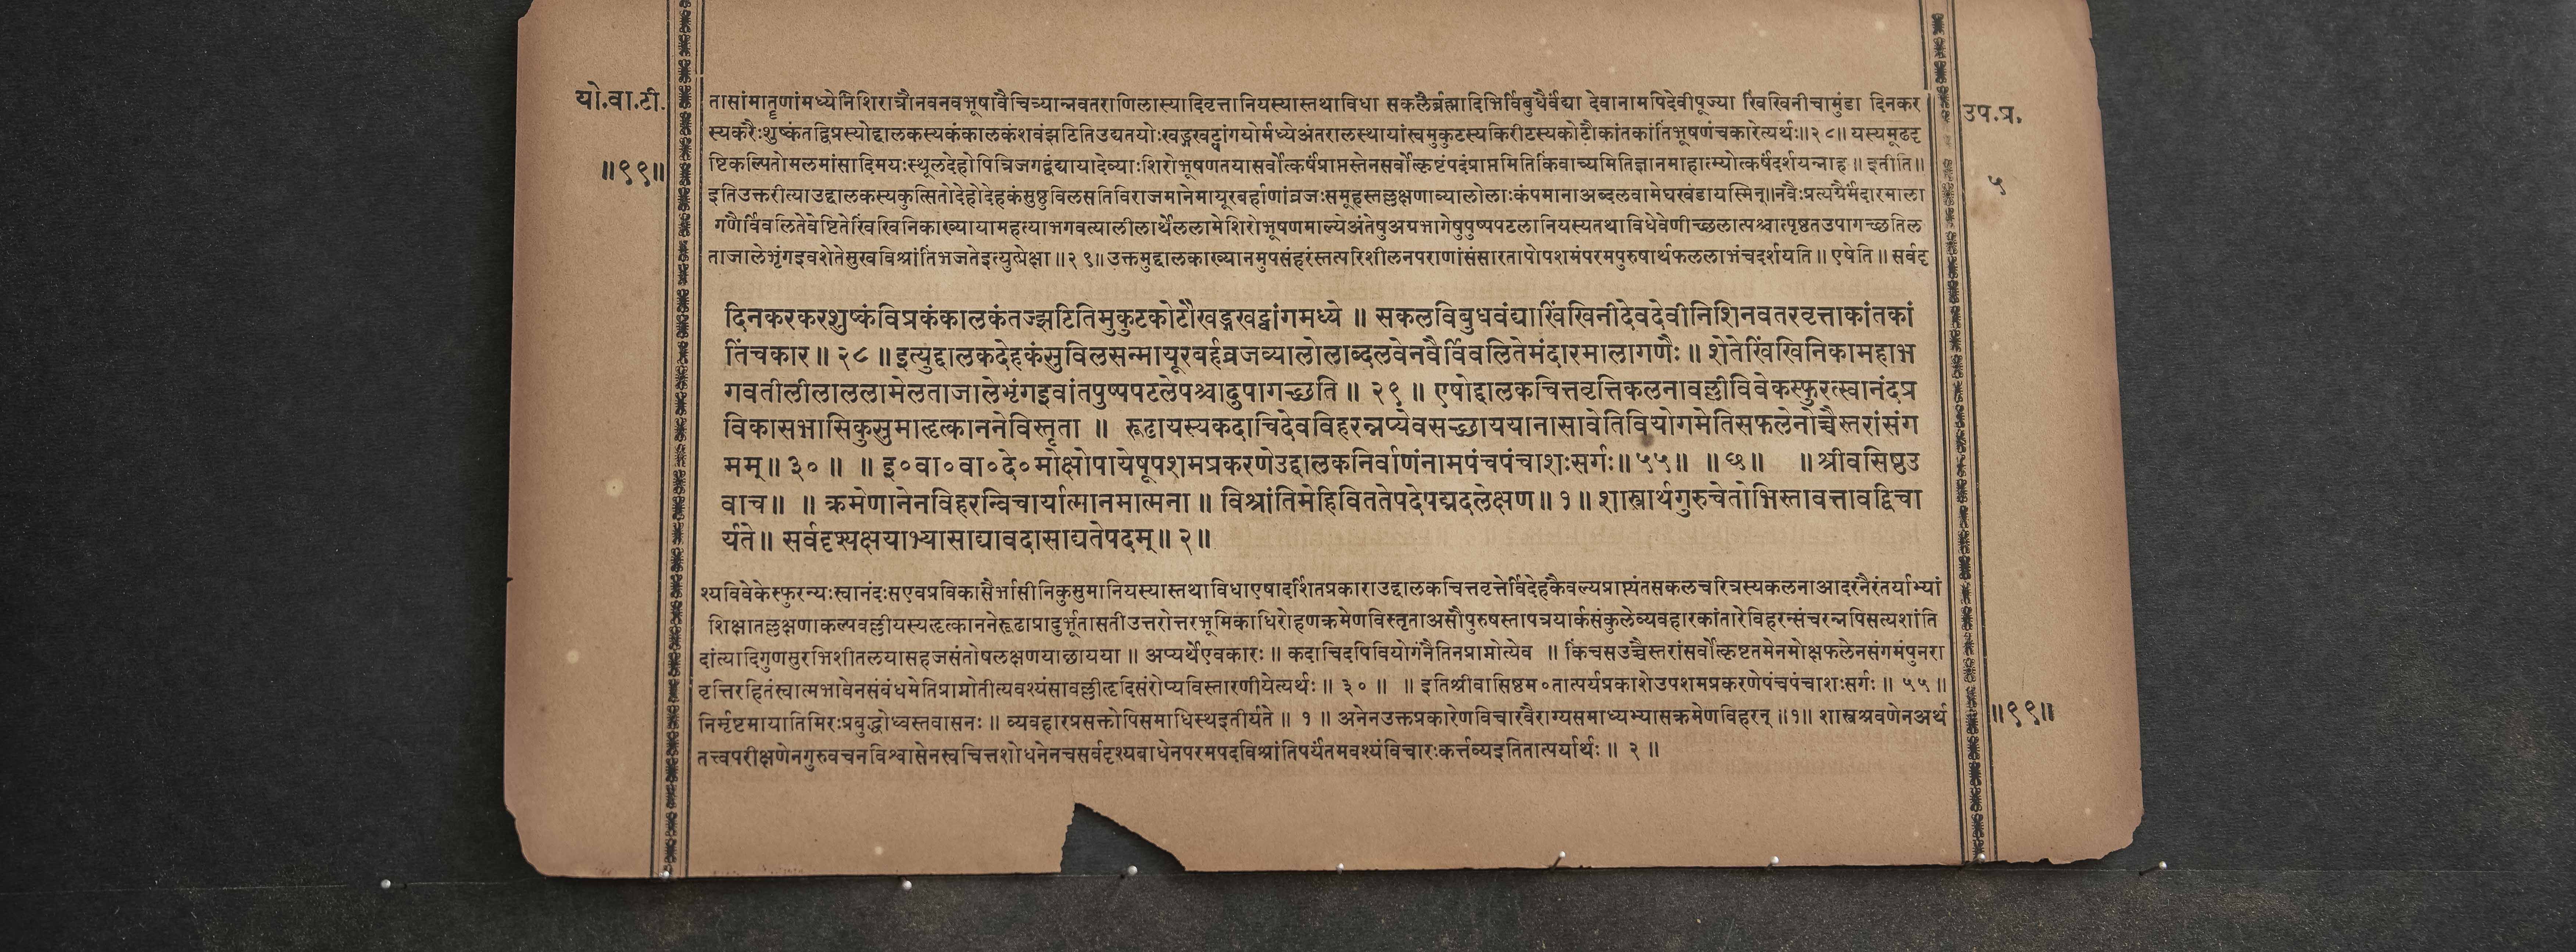 यो.वा.टी.
॥९९॥
तासांमातॄणांमध्येनिशिरात्रौनवनवभूषावैचित्र्यान्नवतराणिलास्यादिवृत्तानियस्यास्तथाविधा सकलैर्ब्रह्मादिभिर्विबुधैर्वंद्या देवानामपिदेवीपूज्या खिंखिनीचामुंडा दिनकर
स्यकरैःशुष्कंतद्विप्रस्योद्दालकस्यकंकालकंशवंझटितिउद्यतयोःखड्गखट्वांगयोर्मध्येअंतरालस्थायांस्वमुकुटस्यकिरीटस्यकोटौकांतकांतिंभूषणंचकारेत्यर्थः॥२८॥ यस्यमूढदृ
ष्टिकल्पितोमलमांसादिमयःस्थूलदेहोपित्रिजगद्वंद्यायादेव्याःशिरोभूषणतयासर्वोत्कर्षंप्राप्तस्तेनसर्वोत्कृष्टंपदंप्राप्तमितिकिंवाच्यमितिज्ञानमाहात्म्योत्कर्षंदर्शयन्नाह॥ इतीति॥
इतिउक्तरीत्याउद्दालकस्यकुत्सितोदेहोदेहकंसुष्ठुविलसतिविराजमानेमायूरबर्हाणांव्रजःसमूहस्तल्लक्षणाव्यालोलाःकंपमानाअब्दलवामेघखंडायस्मिन्॥नवैःप्रत्यग्रैर्मंदारमाला
गणैर्विवलितेवेष्टितेखिंखिनिकाख्यायामहत्याभगवत्यालीलार्थेललामेशिरोभूषणमाल्येअंतेषुअग्रभागेषुपुष्पपटलानियस्यतथाविधेवेणीच्छलात्पश्चात्पृष्ठतउपागच्छतिल
ताजालेभृंगइवशेतेसुखविश्रांतिंभजतेइत्युत्प्रेक्षा॥२९॥उक्तमुद्दालकाख्यानमुपसंहरंस्तत्परिशीलनपराणांसंसारतापोपशमंपरमपुरुषार्थफललाभंचदर्शयति॥ एषेति॥ सर्वदृ
दिनकरकरशुष्कंविप्रकंकालकंतज्झटितिमुकुटकोटौखड्गखट्वांगमध्ये॥ सकलविबुधवंद्याखिंखिनीदेवदेवीनिशिनवतरवृत्ताकांतकां
तिंचकार॥२८॥इत्युद्दालकदेहकंसुविलसन्मायूरबर्हव्रजव्यालोलाब्दलवेनवैर्विवलितेमंदारमालागणैः॥ शेतेखिंखिनिकामहाभ
गवतीलीलाललामेलताजालेभृंगइवांतपुष्पपटलेपश्चादुपागच्छति॥ २९॥ एषोद्दालकचित्तवृत्तिकलनावल्लीविवेकस्फुरत्स्वानंदप्र
विकासभासिकुसुमाहृत्काननेविस्तृता॥ रूढायस्यकदाचिदेवविहरन्नप्येवसच्छाययानासावेतिवियोगमेतिसफलेनोच्चैस्तरांसंग
मम्॥ ३०॥ ॥ इ॰वा॰वा॰दे॰मोक्षोपायेषूपशमप्रकरणेउद्दालकनिर्वाणंनामपंचपंचाशःसर्गः॥५५॥ ॥छ॥ ॥श्रीवसिष्ठउ
वाच॥ ॥ क्रमेणानेनविहरन्विचार्यात्मानमात्मना॥ विश्रांतिमेहिविततेपदेपद्मदलेक्षण॥१॥ शास्त्रार्थगुरुचेतोभिस्तावत्तावद्विचा
र्यते॥ सर्वदृश्यक्षयाभ्यासाद्यावदासाद्यतेपदम्॥२॥
श्यविवेकेस्फुरन्यःस्वानंदःसएवप्रविकासैर्भासीनिकुसुमानियस्यास्तथाविधाएषादर्शितप्रकाराउद्दालकचित्तवृत्तेर्विदेहकैवल्यप्राप्त्यंतसकलचरित्रस्यकलनाआदरनैरंतर्याभ्यां
शिक्षातल्लक्षणाकल्पवल्लीयस्यहृत्काननेरूढाप्रादुर्भूतासतीउत्तरोत्तरभूमिकाधिरोहणक्रमेणविस्तृताअसौपुरुषस्तापत्रयार्कसंकुलेव्यवहारकांतारेविहरन्संचरन्नपिसत्यशांति
दांत्यादिगुणसुरभिशीतलयासहजसंतोषलक्षणयाछायया॥ अप्यर्थेएवकारः॥ कदाचिदपिवियोगंनैतिनप्राप्नोत्येव ॥ किंचसउच्चैस्तरांसर्वोत्कृष्टतमेनमोक्षफलेनसंगमंपुनरा
वृत्तिरहितंस्वात्मभावेनसंबंधमेतिप्राप्नोतीत्यवश्यंसावल्लीहृदिसंरोप्यविस्तारणीयेत्यर्थः॥ ३०॥ ॥ इतिश्रीवासिष्ठम॰तात्पर्यप्रकाशेउपशमप्रकरणेपंचपंचाशःसर्गः॥ ५५॥
निर्मृष्टमायातिमिरःप्रबुद्धोध्वस्तवासनः॥ व्यवहारप्रसक्तोपिसमाधिस्थइतीर्यते॥ १॥ अनेनउक्तप्रकारेणविचारवैराग्यसमाध्यभ्यासक्रमेणविहरन्॥१॥ शास्त्रश्रवणेनअर्थ
तत्त्वपरीक्षणेनगुरुवचनविश्वासेनस्वचित्तशोधनेनचसर्वदृश्यबाधेनपरमपदविश्रांतिपर्यंतमवश्यंविचारःकर्त्तव्यइतितात्पर्यार्थः॥ २॥
उप.प्र.
५
॥९९॥